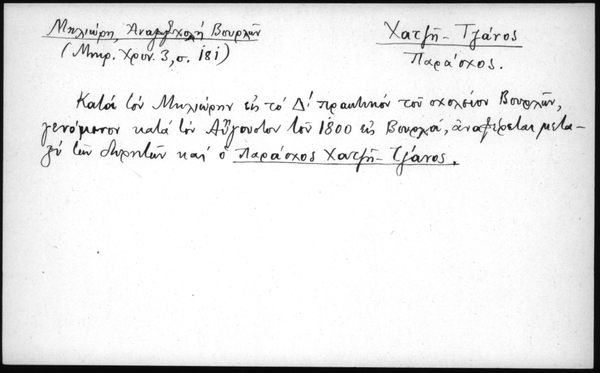 Μηλιώρη, Ἀναγν. Σχολή Βουρλῶν
(Μικρ. Χρον. 3, σ. 181)
Χατζῆ-Τζάνος
Παράσχος.
Κατά τόν Μηλιώρην εἰς τό Δ! πρακτικόν τοῦ σχολείου Βουρλῶν,
γενόμενον κατά τόν Αὔγουστον τοῦ 1800 εἰς Βουρλά, ἀναφέρεται μετα-
ξύ τῶν δωρητῶν καί ὁ Παράσχος Χατζῆ-Τζάνος.